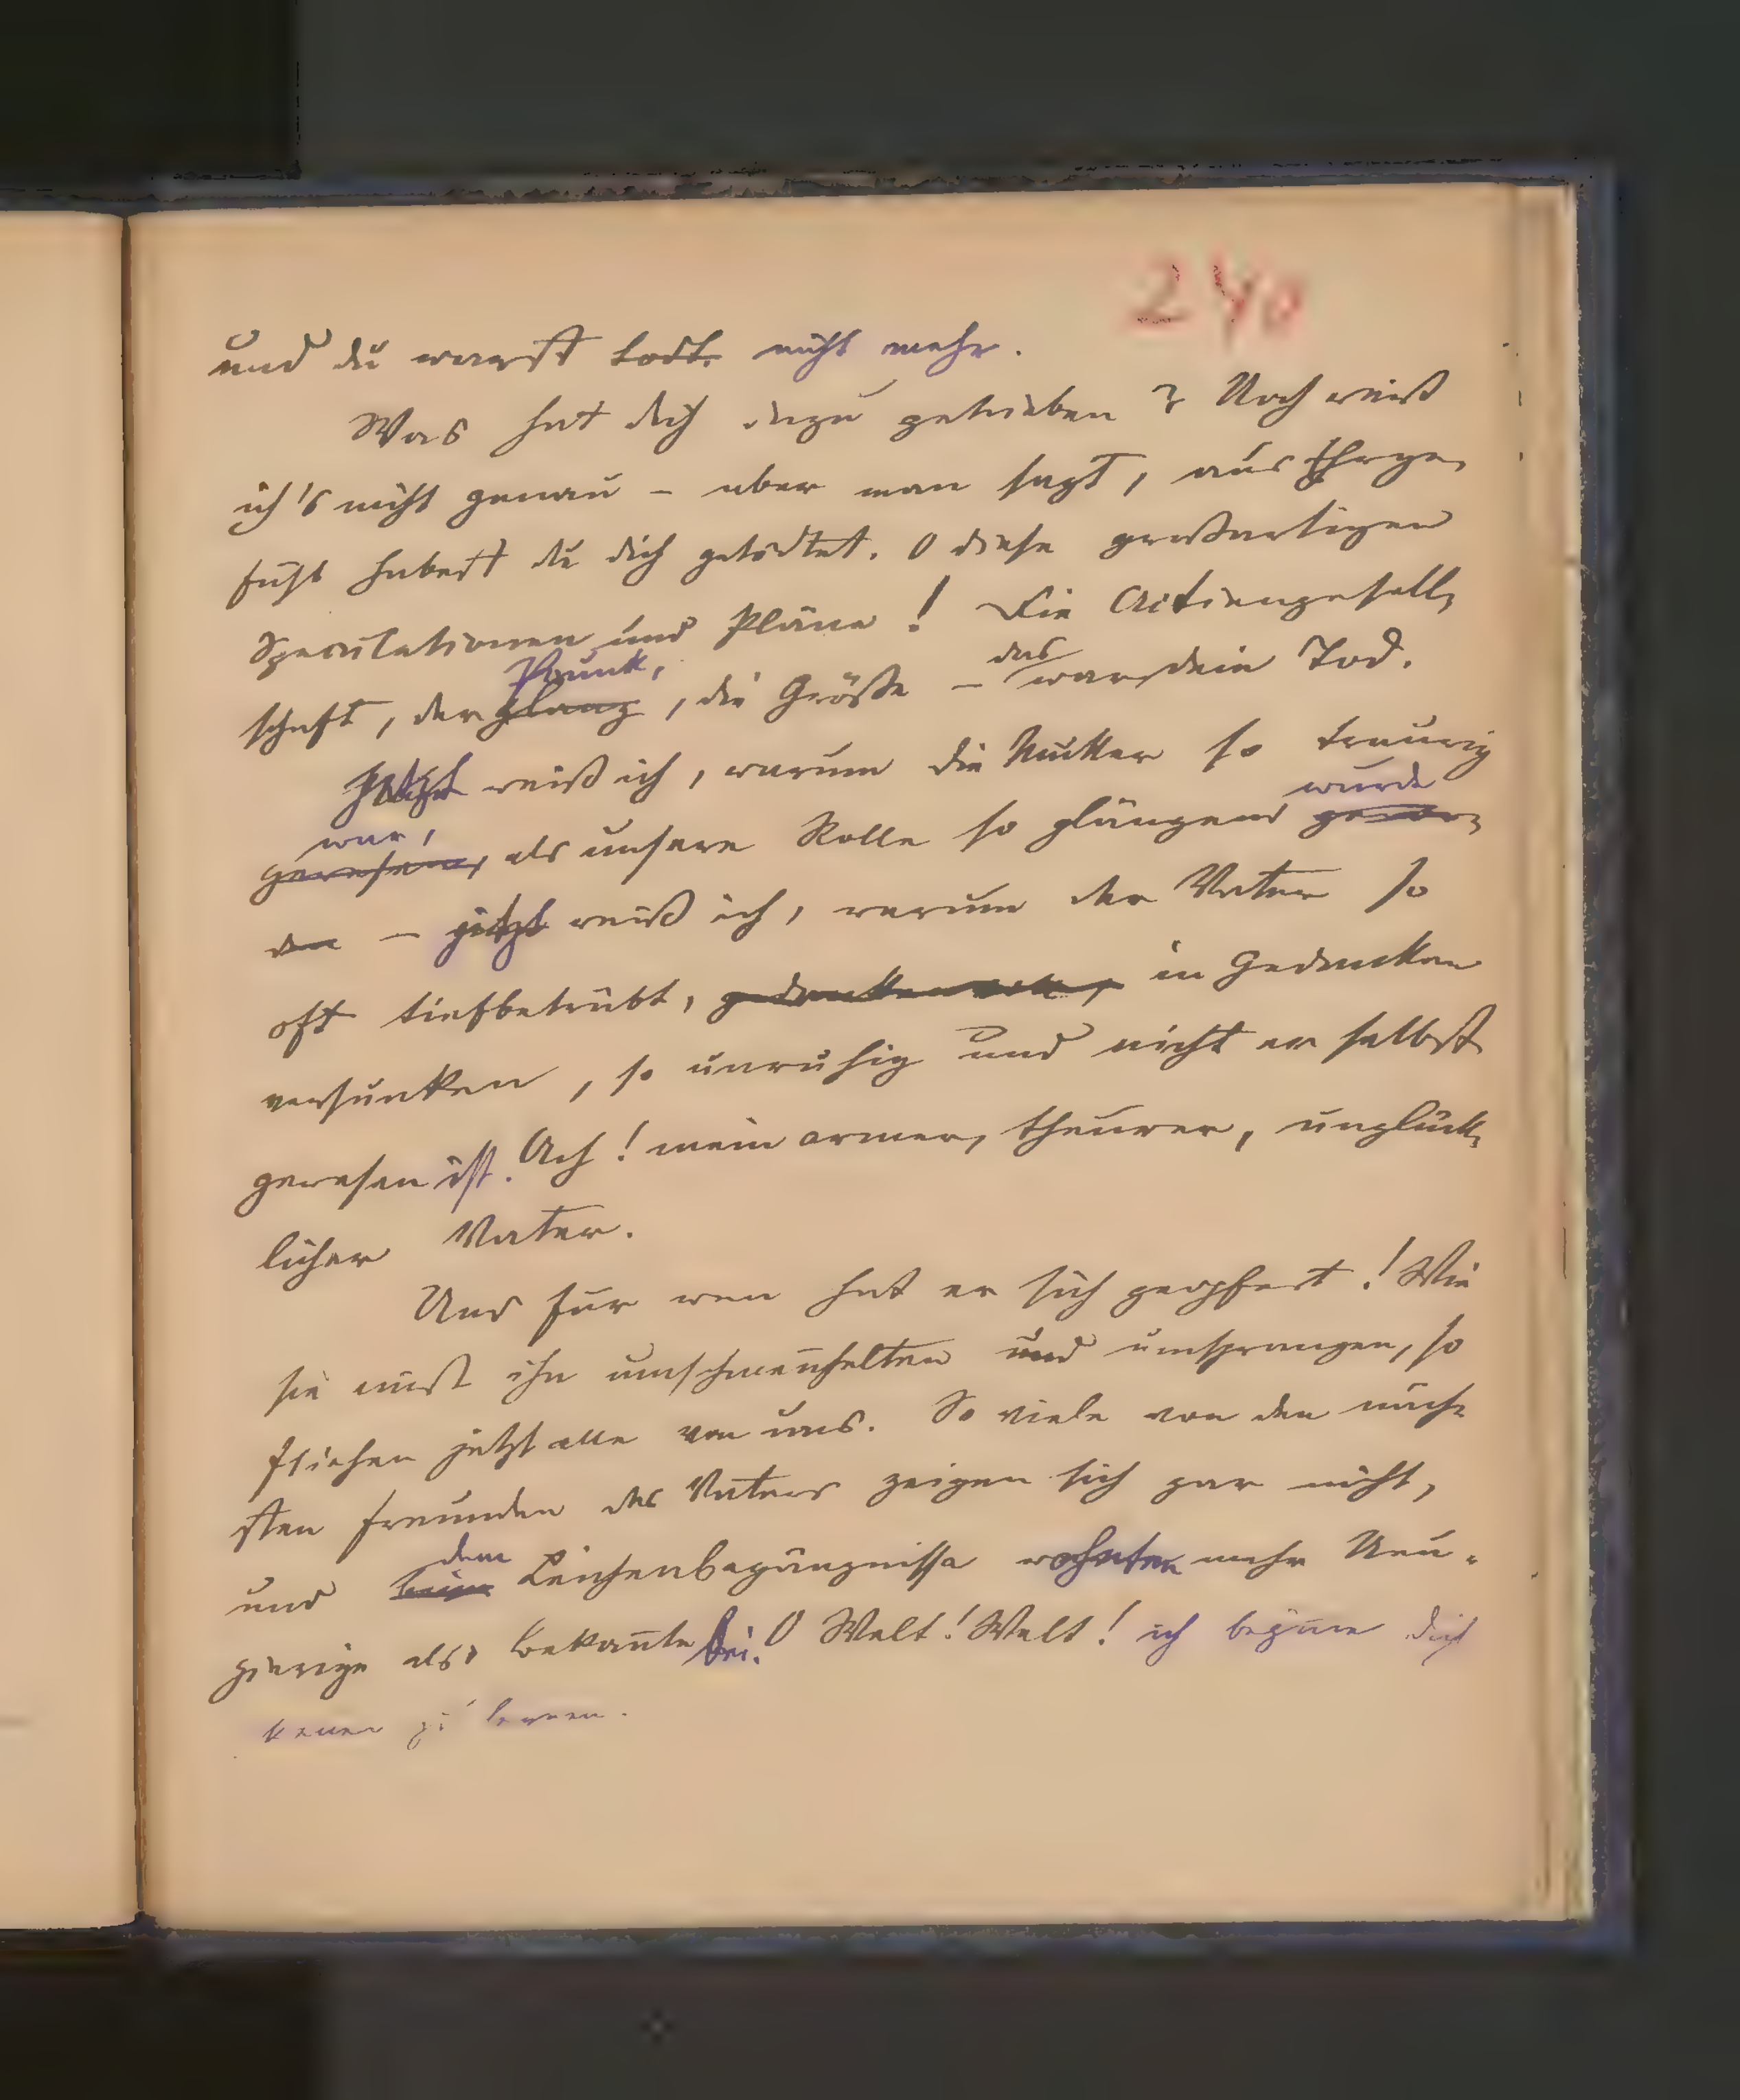 240
und du warst todt. nicht mehr.
Was hat dich dazu getrieben? Noch weiß
ich's nicht genau – aber man sagt, aus Ehrge-
fühl habest du dich getödtet. O diese großartigen
Speculationen und Pläne! Die Actiengesell-
Prunk, das
schaft, der Glanz, die Größe – war dein Tod.
Jetzt weiß ich, warum die Mutter so traurig
war, wurde
gewesen, als unsere Rolle so glänzend gewor-
den – jetzt weiß ich, warum der Vater so
oft tiefbetrübt, gedankenvoll, in Gedanken
versunken, so unruhig und nicht er selbst
gewesen ist. Ach! mein armer, theurer, unglück-
licher Vater.
Und für wen hat er sich geopfert! Wie
sie einst ihn umschmeichelten und umsprangen, so
fliehen jetzt alle von uns. So viele von den näch-
sten Freunden des Vaters zeigen sich gar nicht,
dem
und beim Leichenbegängnisse wohnten mehr Neu-
gierige als Bekannte bei. O Welt! Welt! ich beginne dich
kennen zu lernen.